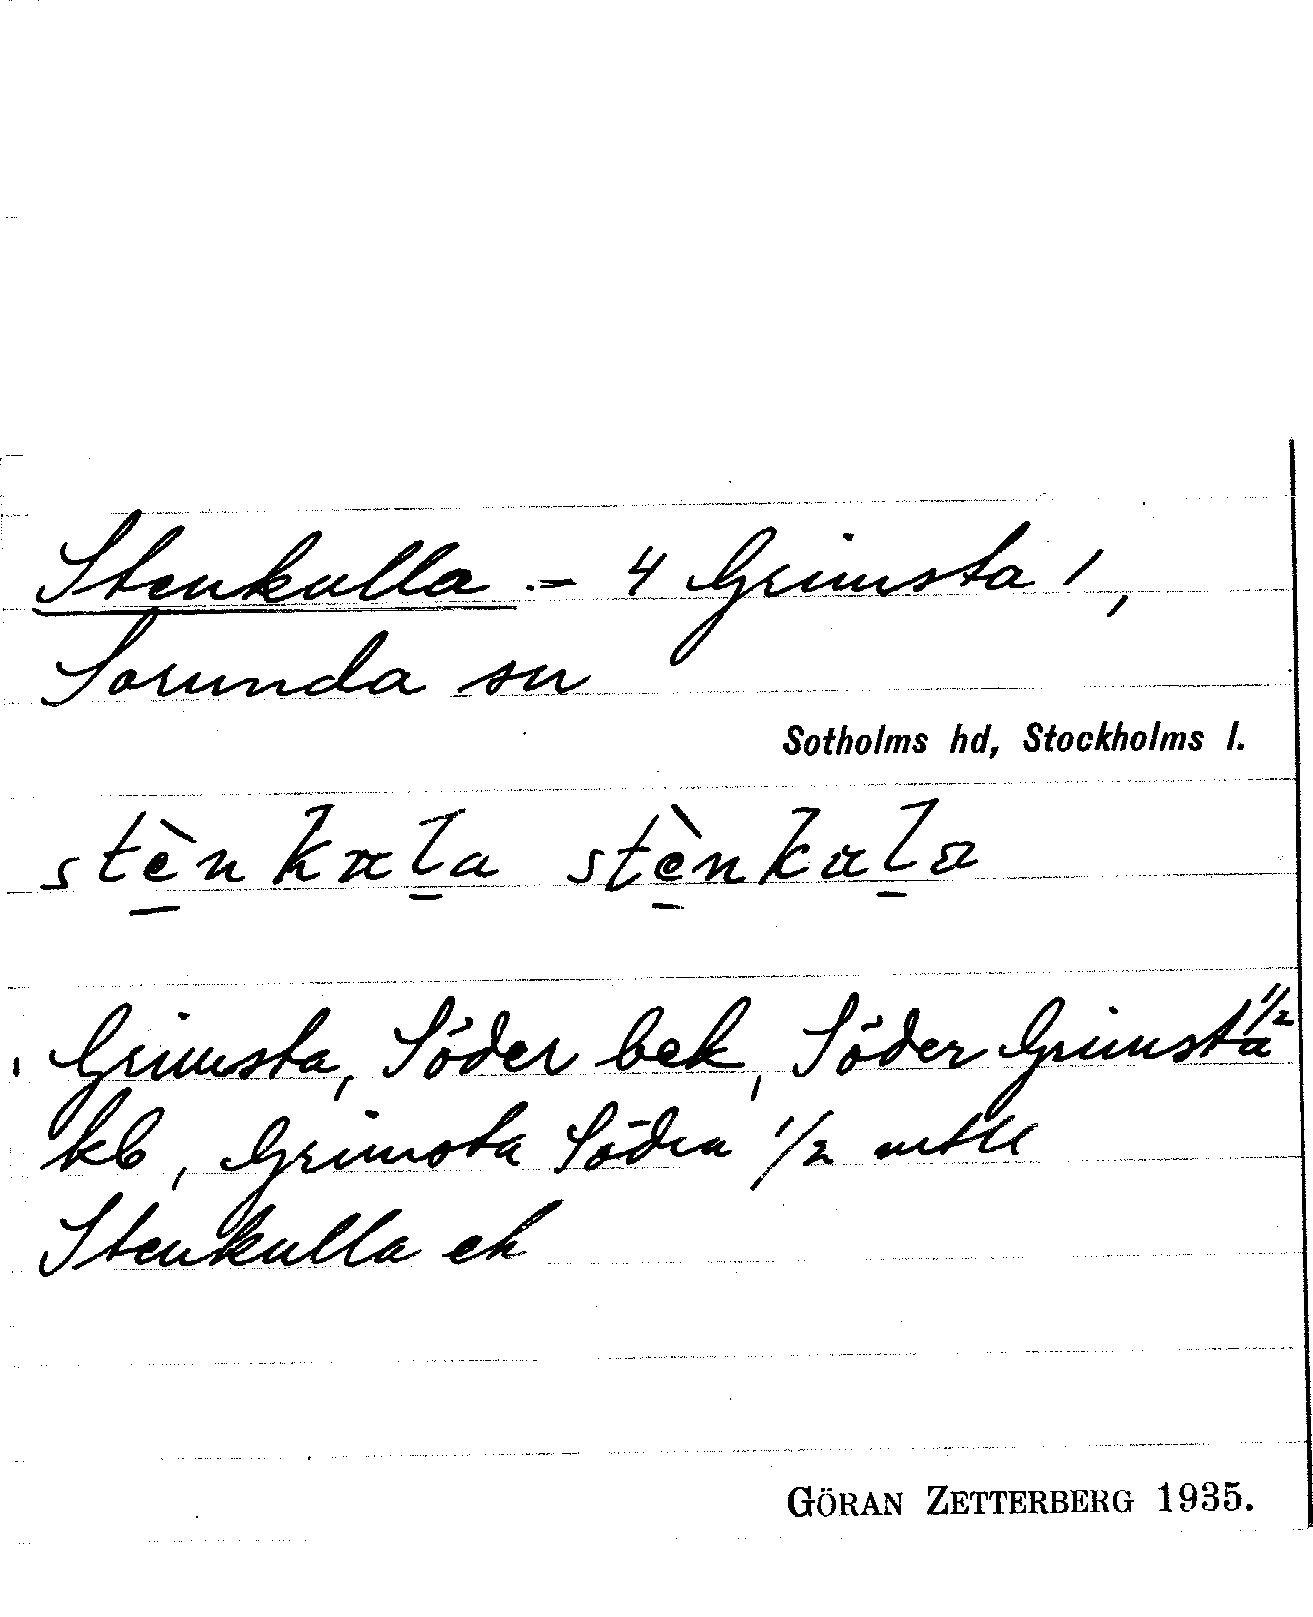 Stenkulla = 4 Grimsta 1,
Sorunda sn
Sotholms hd, Stockholms l.
stènkala stènkala
Grimsta, Söder bek, Söder Grimsta 1/2
kb, Grimsta Södra 1/2 mtl
Stenkulla ek
GÖRAN ZETTERBERG 1935.